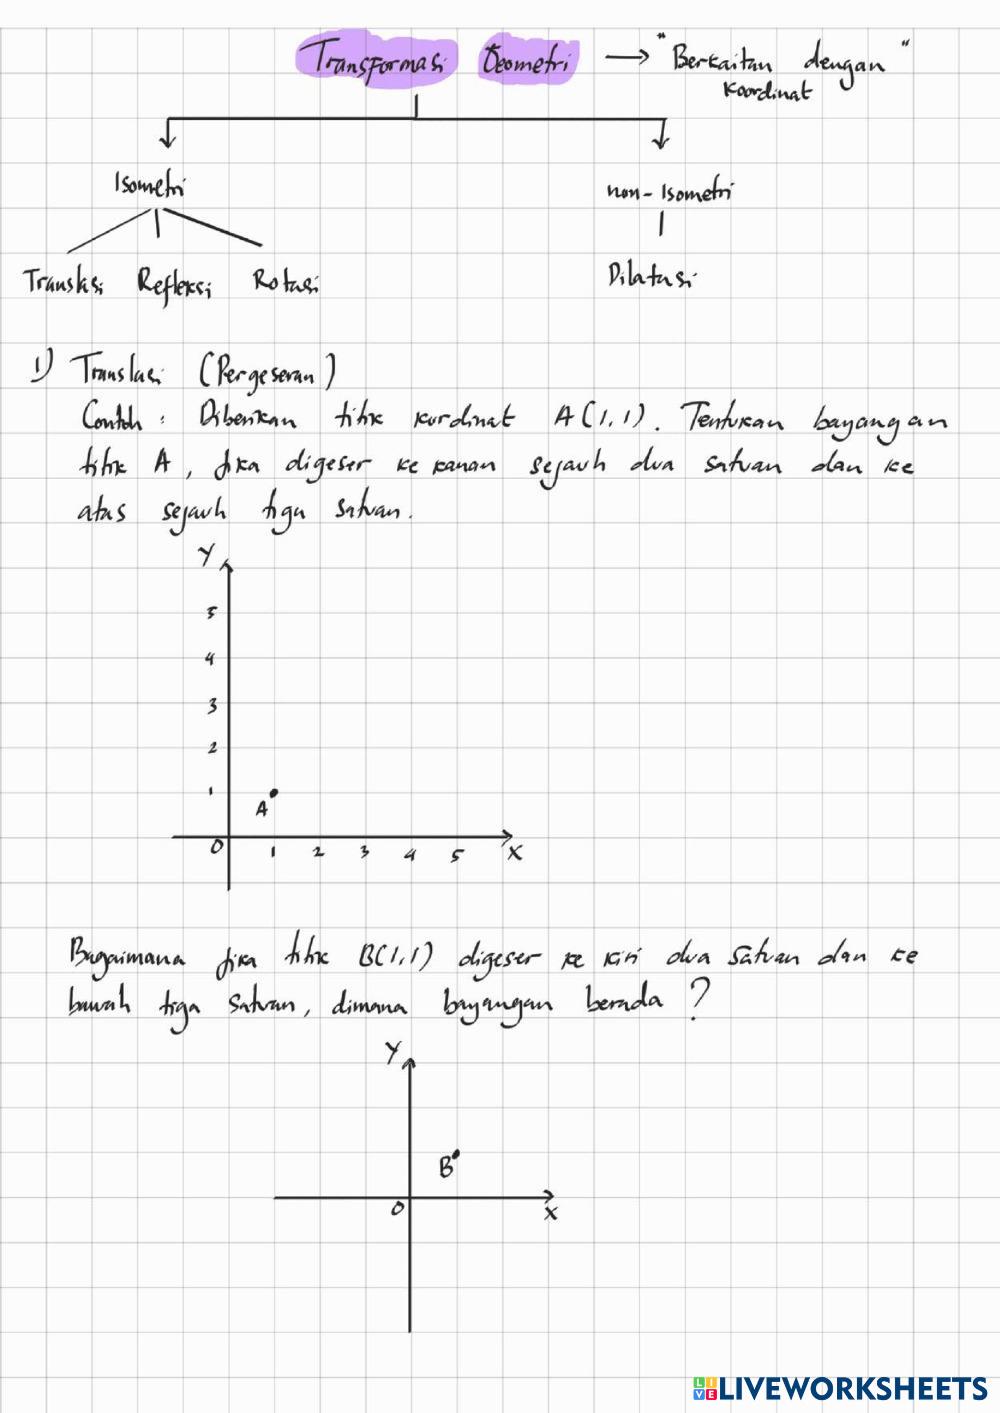 Transformasi Geometri → "Berkaitan dengan"
koordinat
Isometri
non-Isometri
Translasi Refleksi Rotasi
Dilatasi
1) Translasi (Pergeseran)
Contoh : Diberikan titik kordinat A(1,1). Tentukan bayangan
titik A, jika digeser ke kanan sejauh dua satuan dan ke
atas sejauh tiga satuan.
Y
5
4
3
2
1
A
0 1 2 3 4 5 X
Bagaimana jika titik B(1,1) digeser ke kiri dua satuan dan ke
bawah tiga satuan, dimana bayangan berada ?
Y
B
0
X
LIVE LIVEWORKSHEETS